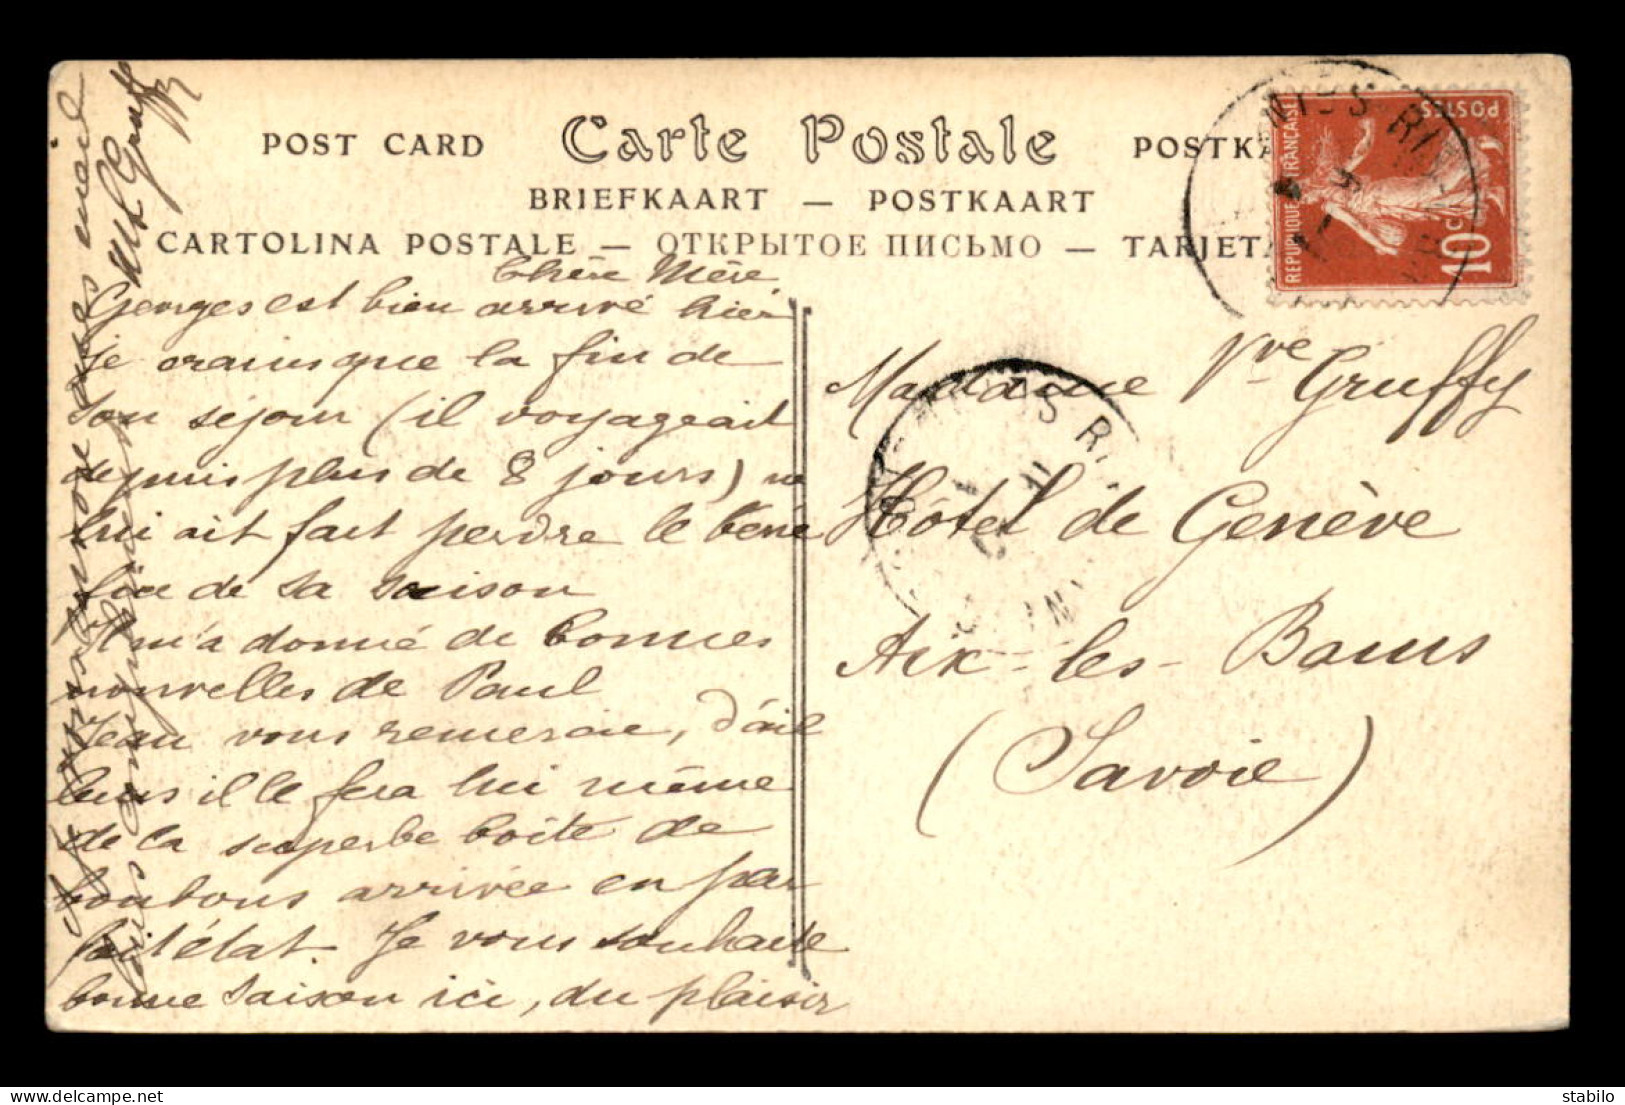 POST CARD Carte Postale POSTKA
BRIEFKAART — POSTKAART
CARTOLINA POSTALE — ОТКРЫТОЕ ПИСЬМО — TARJETA
REPUBLIQUE FRANÇAISE
POSTES
10c
Chère Mère,
Georges est bien arrivé hier
je crains que la fin de
son séjour (il voyageait
depuis plus de 8 jours) ne
lui ait fait perdre le béné
fice de sa saison
Il m'a donné de bonnes
nouvelles de Paul
Jean vous remercie, d'ail
leurs il le fera lui même
de la superbe boîte de
bonbons arrivée en par
fait état. Je vous souhaite
bonne saison ici, du plaisir
Madame Vve Gruffy
Hôtel de Genève
Aix-les-Bains
(Savoie)
delcampe.net
stabilo